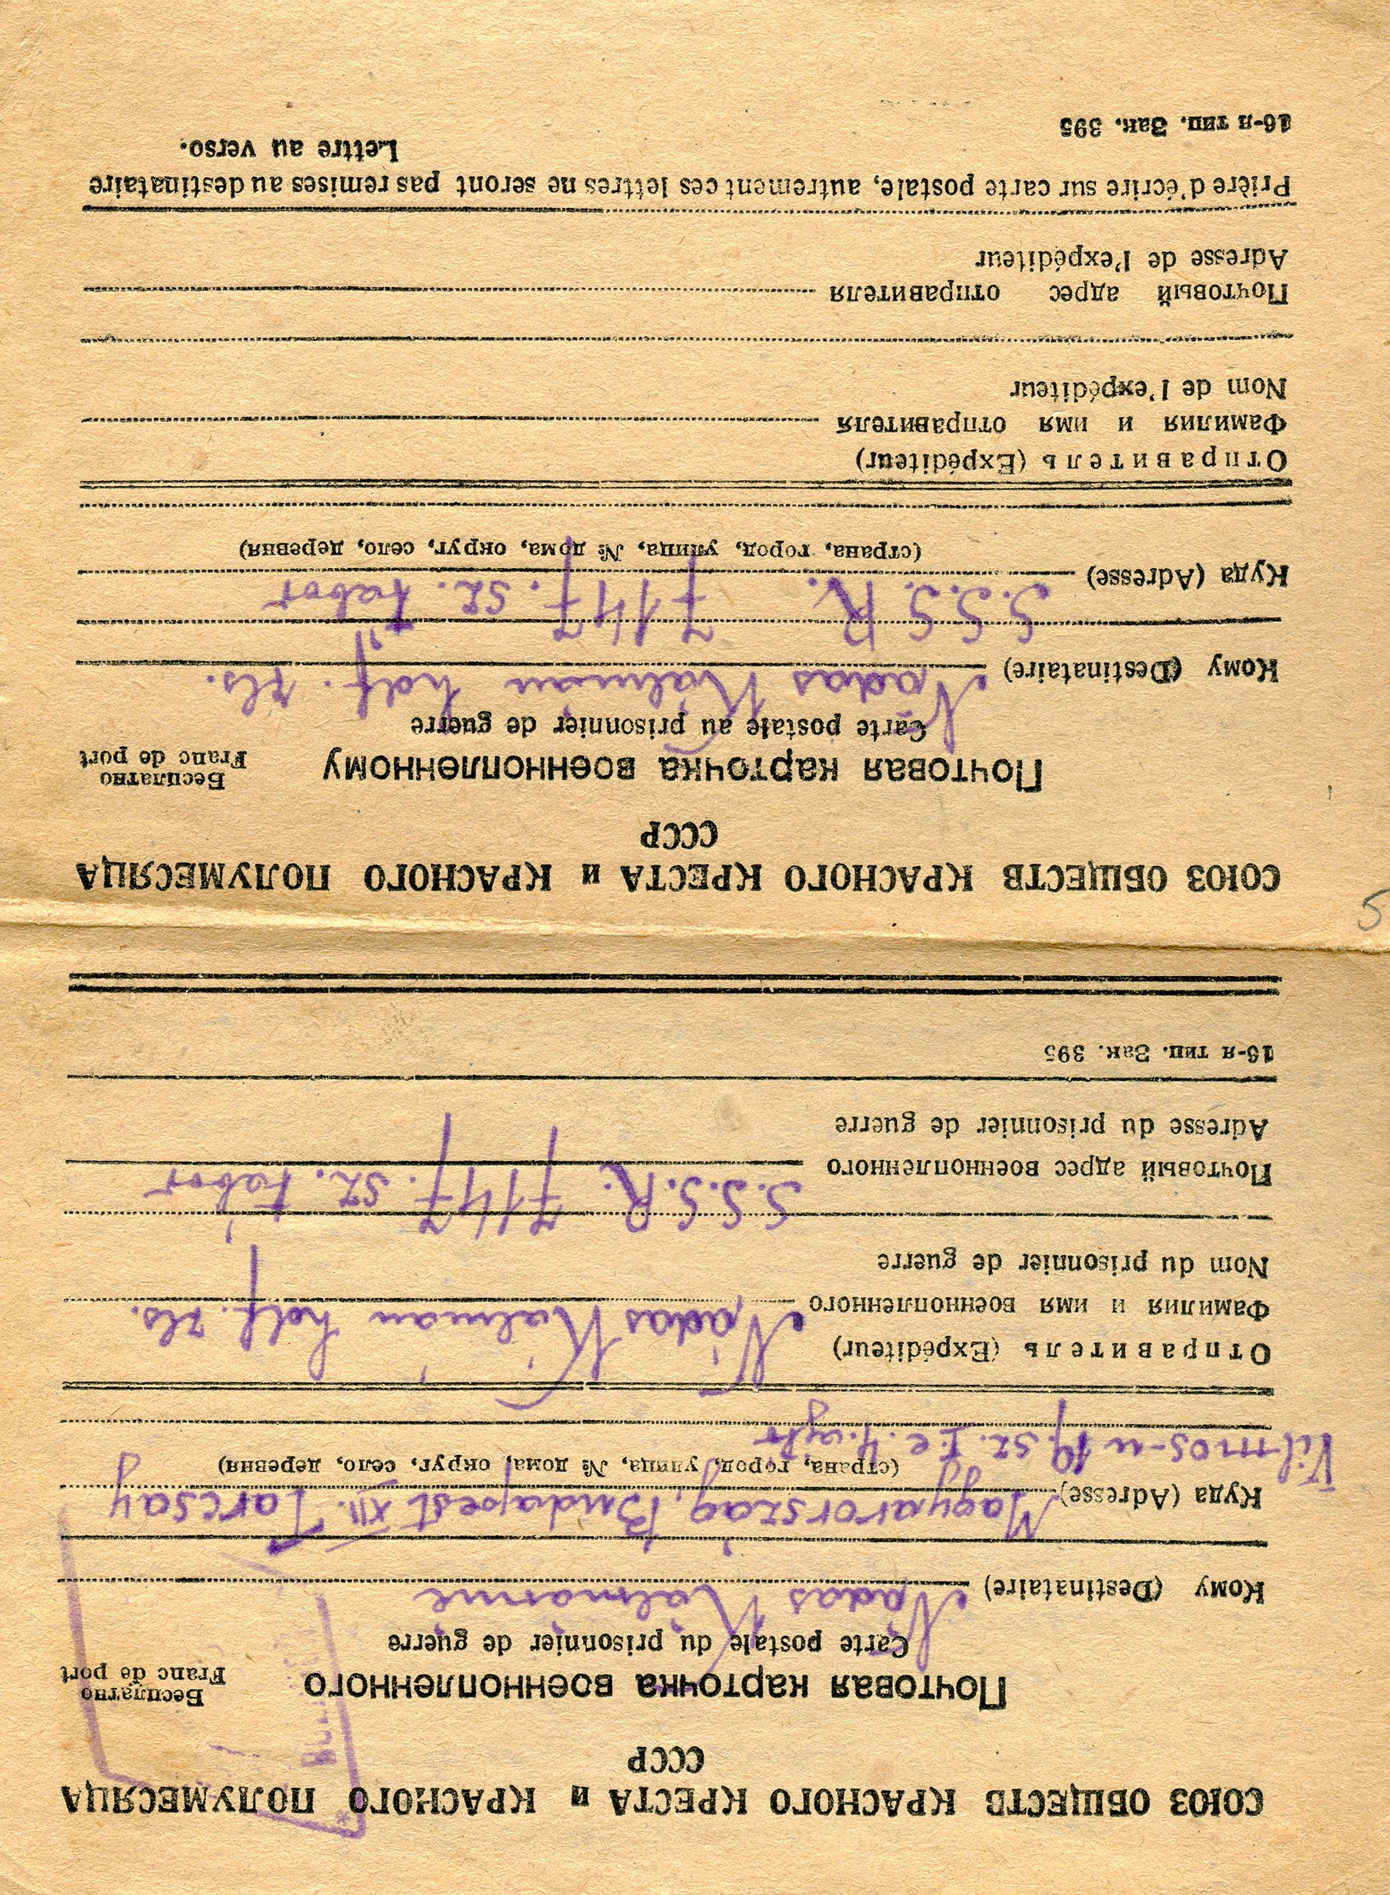 СОЮЗ ОБЩЕСТВ КРАСНОГО КРЕСТА и КРАСНОГО ПОЛУМЕСЯЦА
СССР
Почтовая карточка военнопленного
Бесплатно
Franc de port
Carte postale du prisonnier de guerre
Кому (Destinataire) Nádas Kálmánné
Куда (Adresse) Magyarország, Budapest XII. Tarcsay
(страна, город, улица, № дома, округ, село, деревня)
Vilmos-u 19. sz. I. e. 4. ajtó
Отправитель (Expéditeur)
Фамилия и имя военнопленного Nádas Kálmán hdf. zls.
Nom du prisonnier de guerre
S.S.S.R. 7147. sz. tábor
Почтовый адрес военнопленного
Adresse du prisonnier de guerre
16-я тип. Зак. 395
СОЮЗ ОБЩЕСТВ КРАСНОГО КРЕСТА и КРАСНОГО ПОЛУМЕСЯЦА
СССР
Почтовая карточка военнопленному
Бесплатно
Franc de port
Carte postale au prisonnier de guerre
Кому (Destinataire) Nádas Kálmán hdf. zls.
S.S.S.R. 7147. sz. tábor
Куда (Adresse)
(страна, город, улица, № дома, округ, село, деревня)
Отправитель (Expéditeur)
Фамилия и имя отправителя
Nom de l'expéditeur
Почтовый адрес отправителя
Adresse de l'expéditeur
Prière d'écrire sur carte postale, autrement ces lettres ne seront pas remises au destinataire
Lettre au verso.
16-я тип. Зак. 395
5